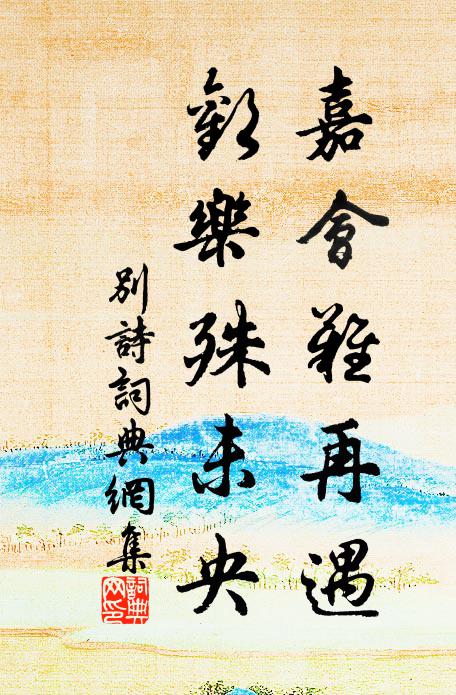 嘉會難再遇
歡樂殊未央
別詩詞典網集
詞典網印